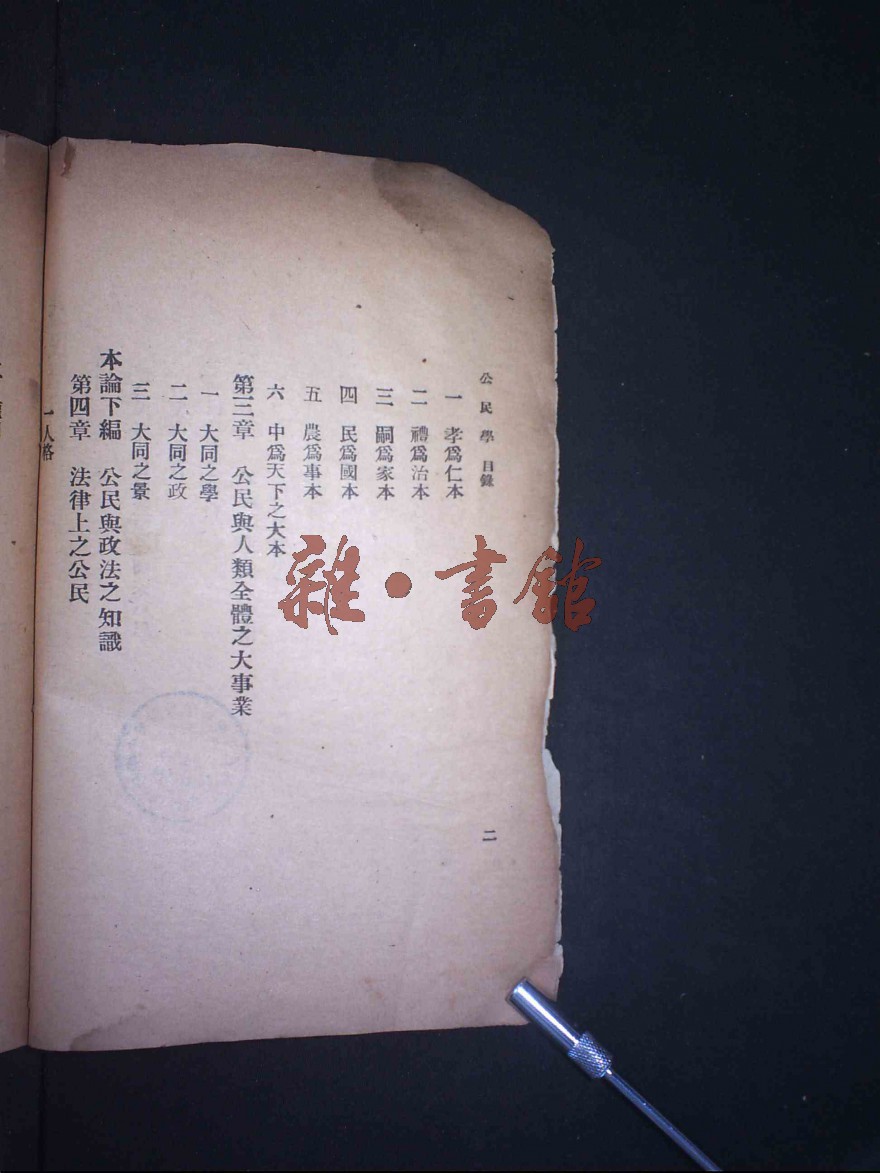 公民學 目錄
一 孝爲仁本
二 禮爲治本
三 嗣爲家本
四 民爲國本
五 農爲事本
六 中爲天下之大本
第三章 公民與人類全體之大事業
一 大同之學
二 大同之政
三 大同之景
本論下編 公民與政法之知識
第四章 法律上之公民
一 人格
二
雜·書館